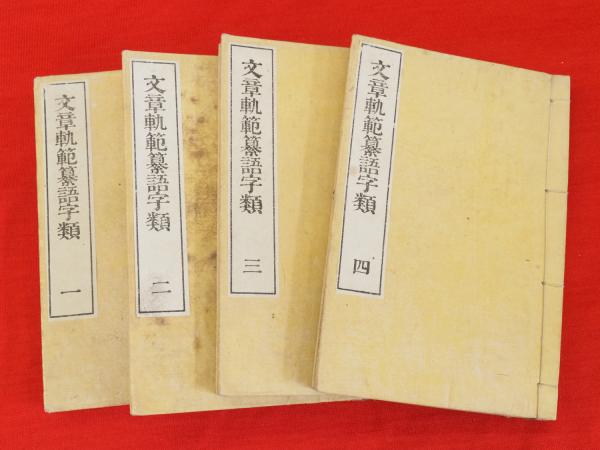 文章軌範纂語字類 一
文章軌範纂語字類 二
文章軌範纂語字類 三
文章軌範纂語字類 四